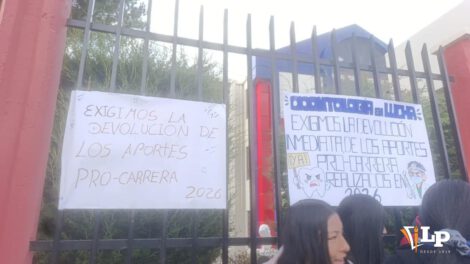 EXIGIMOS LA
DEVOLUCION DE
LOS APORTES
PRO-CARRERA
2026
ODONTOLOGIA EN LUCHA
EXIGIMOS LA DEVOLUCIÓN
INMEDIATA DE LOS APORTES
¡YA! PRO-CARRERA
REALIZADOS EN
2026
LP
DESDE